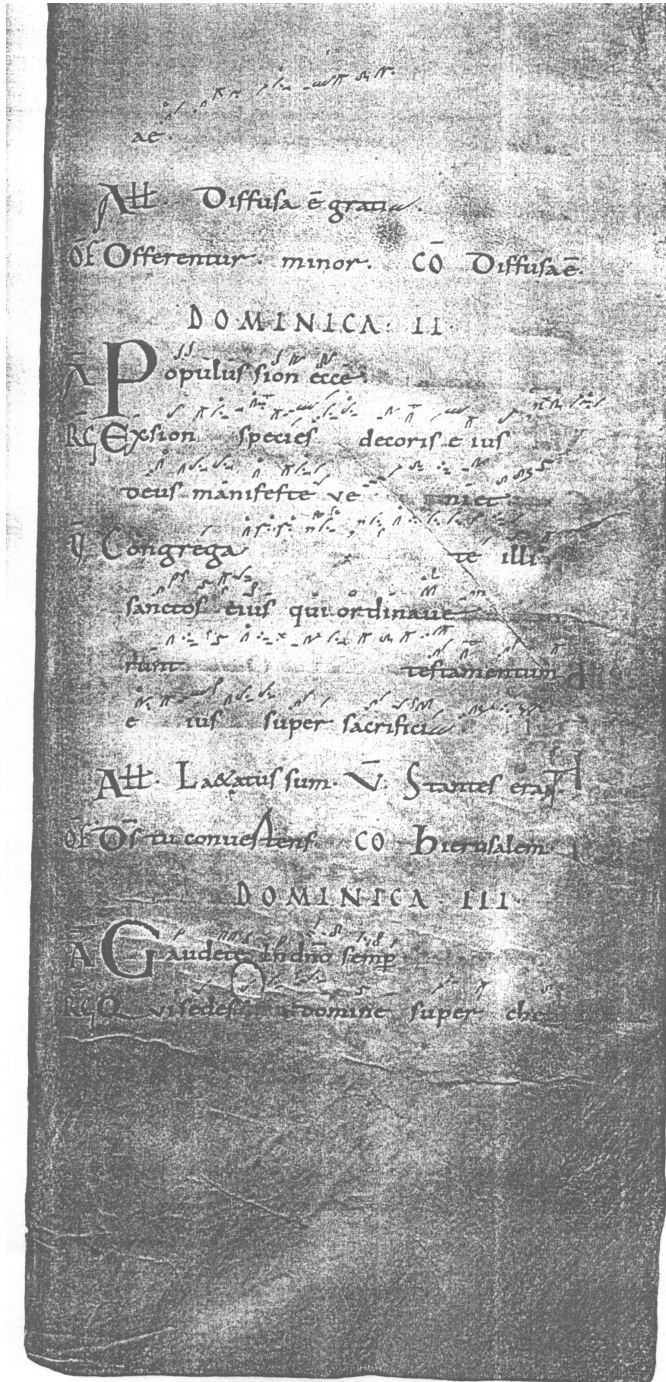 ae
All. Diffusa ē gratia.
Of Offerentur. minor. CŌ Diffusa ē.
DOMINICA. II.
Ā Populus sion ecce.
RG Ex sion species decoris e ius
deus manifeste ve niet
V̄ Congrega te illi
sanctos eius qui ordinave
runt testamentum
e ius super sacrificia
All. Lætatus sum. V̄. Stantes erant
Of D̄s tu convertens CO Hierusalem.
DOMINICA. III.
Ā Gaudete In dn̄o semp
RG Qui sedes domine super che